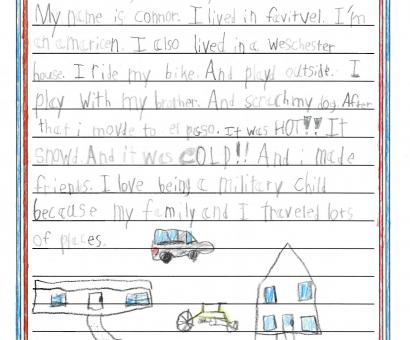 My name is connor. I lived in favitvel. I'm
an americen. I also lived in a Weschester
house. I ride my bike. And play outside. I
play with my brother. And scrach my dog After
that i movde to el passo. It was HOT!! It
snowd. And it was COLD!! And i made
friends. I love being a military child
because my family and I traveled lots
of places.